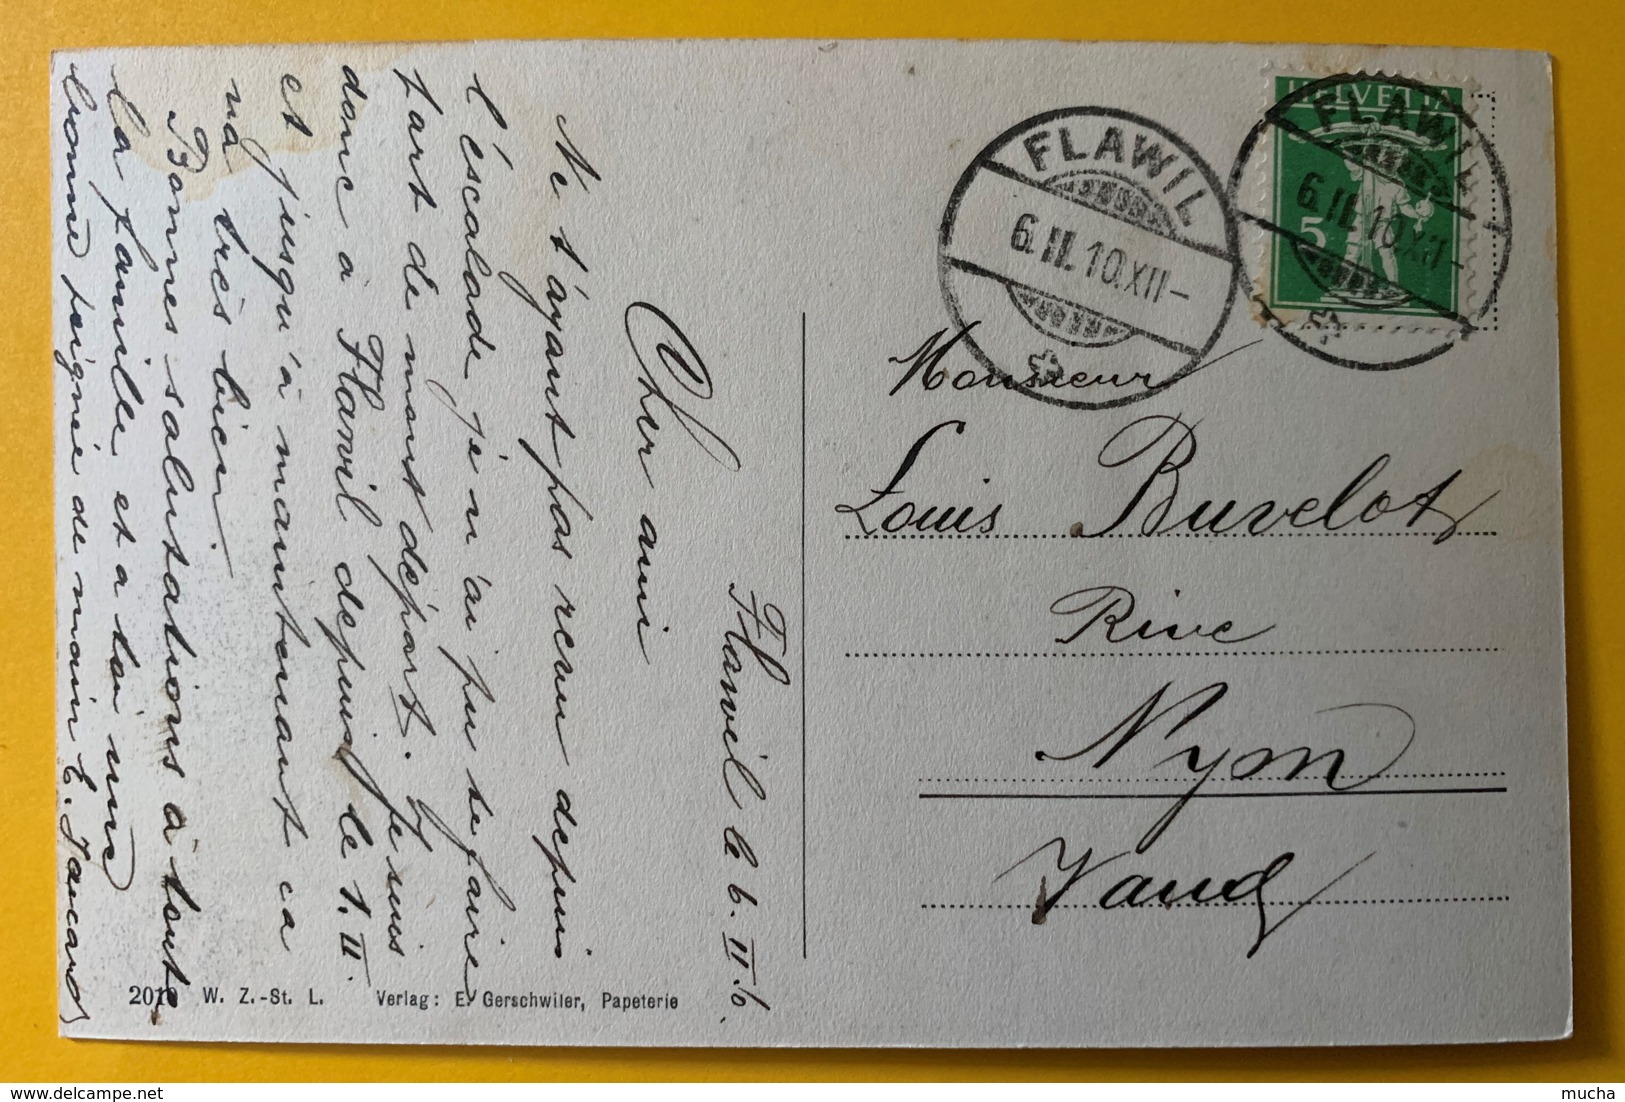 Flawil le 6. II. 10.
Cher ami
Ne t'ayant pas revu depuis
l'éscalade je n'ai pu te faire
part de mont départ. Je suis
donc à Flawil depuis le 1. II.
et jusqu'à maintenant ca
va très bien.
Bonnes salutations à toute
la famille et a toi une
bonne poignée de main E. Jaccard
HELVETIA
5
FLAWIL
6.II.10.XII-
FLAWIL
6.II.10.XII-
Monsieur
Louis Buvelot
Rive
Nyon
Vaud
W. Z.-St. L. Verlag: E. Gerschwiler, Papeterie
mucha